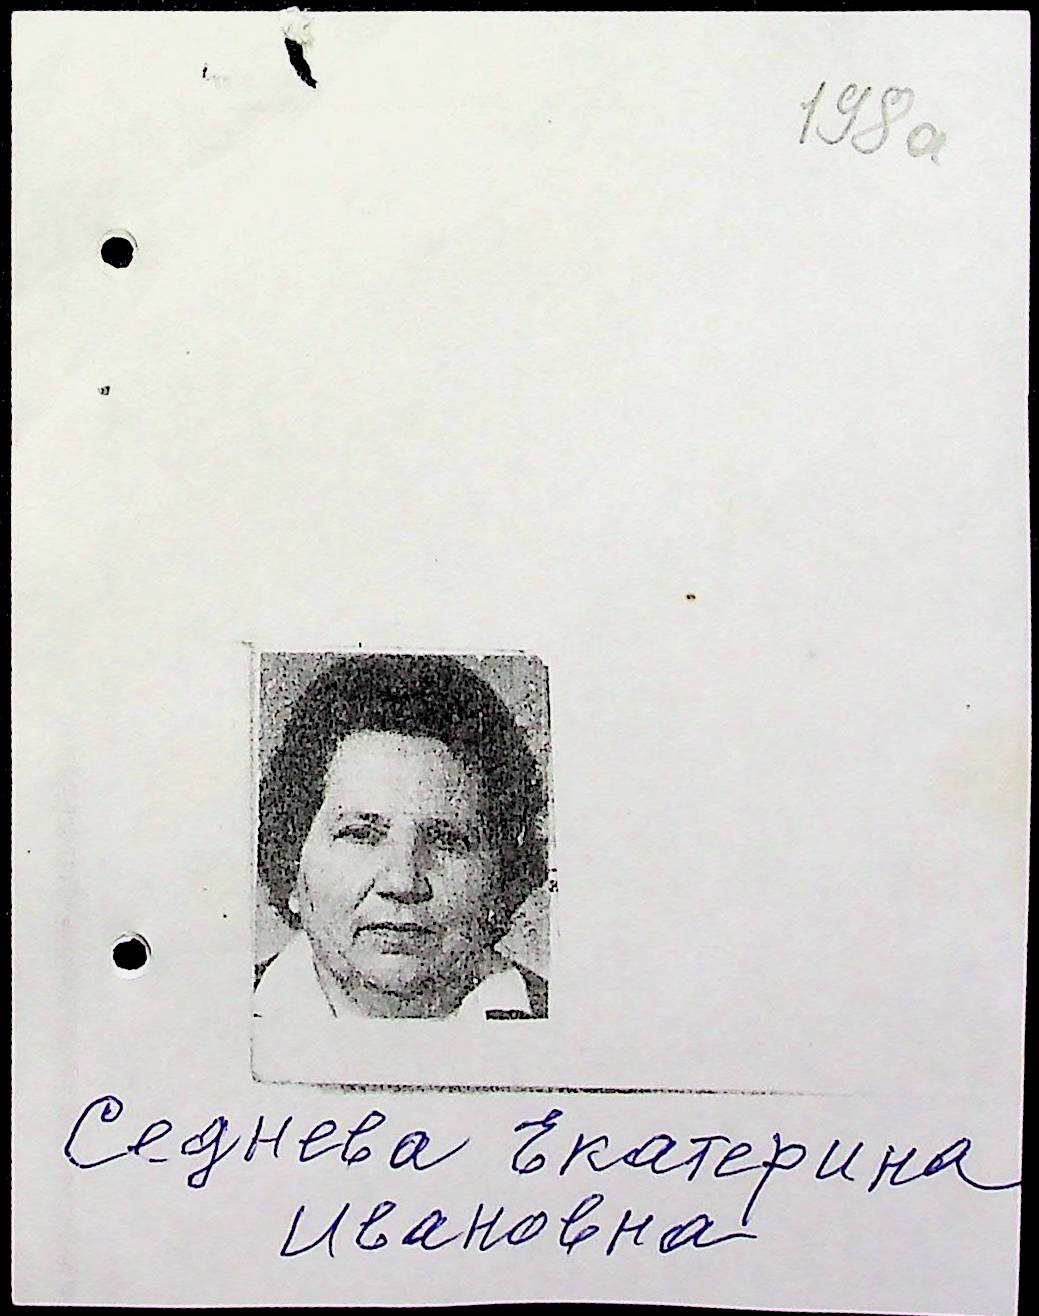 198а
Седнева Екатерина
Ивановна